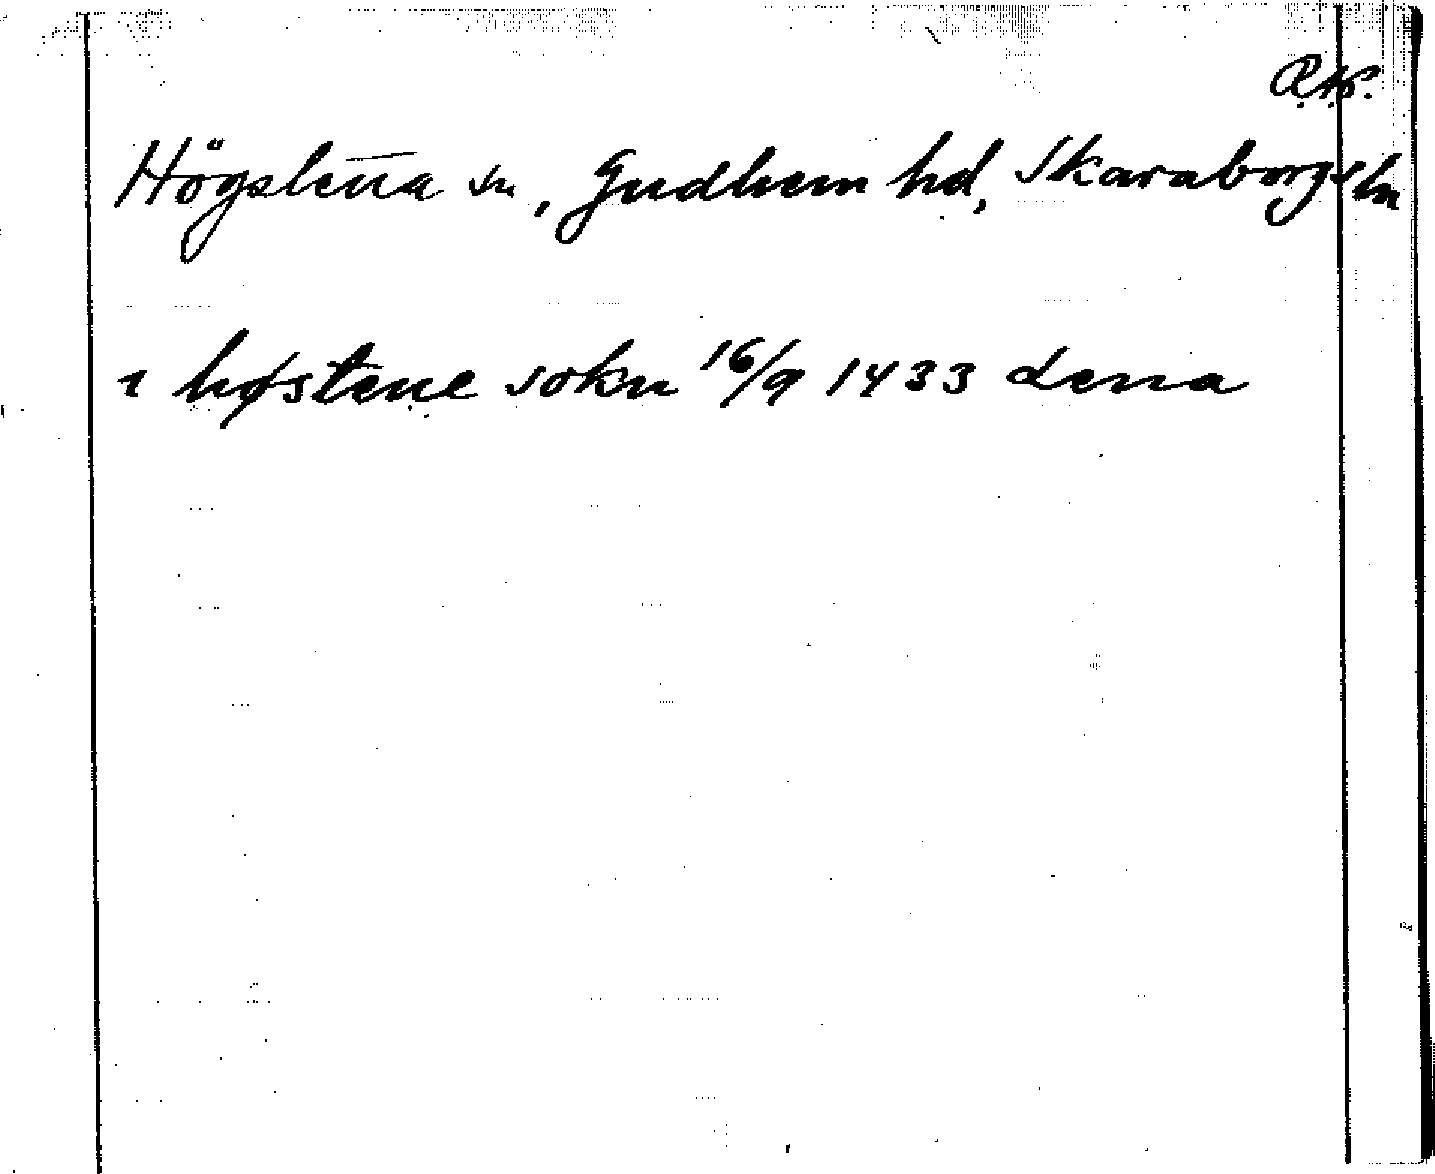 Högstena sn, Gudhem hd, Skaraborgs ln
i høstene sokn 16/9 1433 Lena